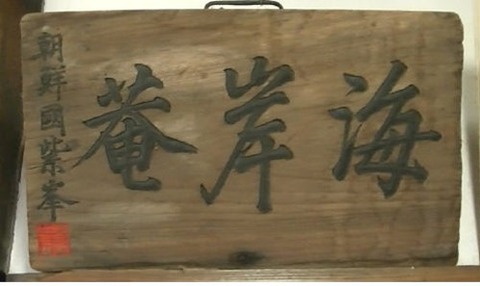 海岸菴
朝鮮國紫峯